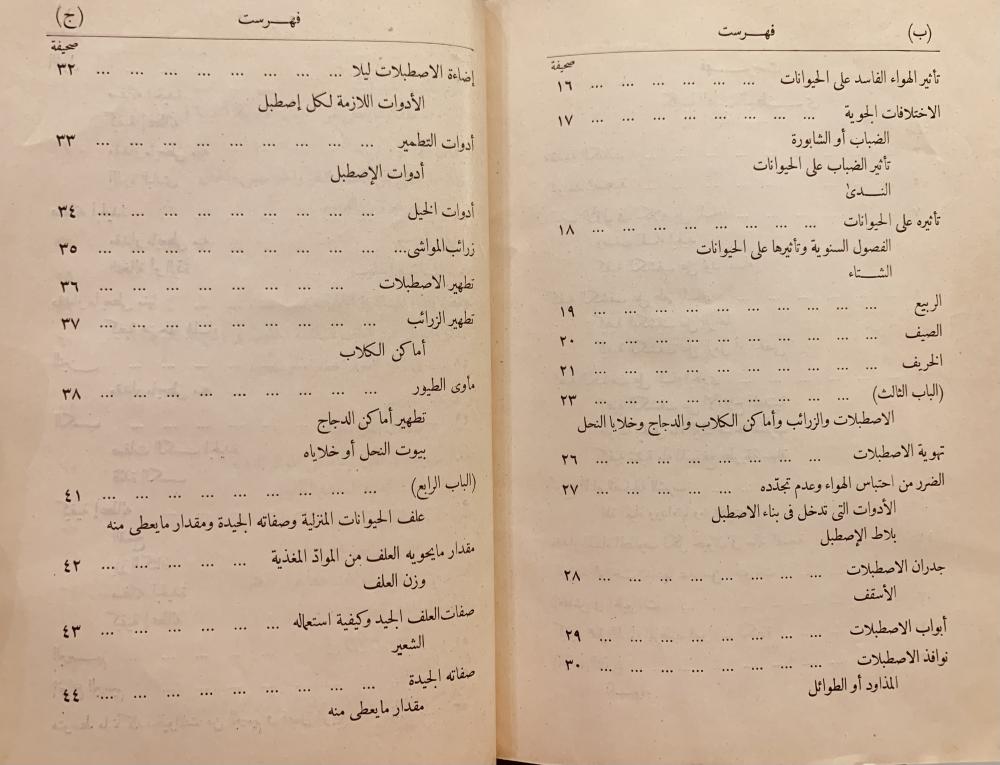 (ب) فهرست
صحيفة
تأثير الهواء الفاسد على الحيوانات ... ... ... ... ... ... ١٦
الاختلافات الجوية ... ... ... ... ... ... ... ... ١٧
الضباب أو الشابورة
تأثير الضباب على الحيوانات
النــدىٰ
تأثيره على الحيوانات ... ... ... ... ... ... ... ... ١٨
الفصول السنوية وتأثيرها على الحيوانات
الشــتاء
الربيع ... ... ... ... ... ... ... ... ... ... ١٩
الصيف ... ... ... ... ... ... ... ... ... ... ٢٠
الخريف ... ... ... ... ... ... ... ... ... ... ٢١
(الباب الثالث) ... ... ... ... ... ... ... ... ... ٢٣
الاصطبلات والزرائب وأماكن الكلاب والدجاج وخلايا النحل
تهوية الاصطبلات ... ... ... ... ... ... ... ... ٢٦
الضرر من احتباس الهواء وعدم تجدّده ... ... ... ... ... ... ٢٧
الأدوات التى تدخل فى بناء الاصطبل
بلاط الإصطبل
جدران الاصطبلات ... ... ... ... ... ... ... ... ٢٨
الأسقف
أبواب الاصطبلات ... ... ... ... ... ... ... ... ٢٩
نوافذ الاصطبلات ... ... ... ... ... ... ... ... ٣٠
المذاود أو الطوائل
فهرست (ج)
صحيفة
إضاءة الاصطبلات ليلا ... ... ... ... ... ... ... ... ... ٣٢
الأدوات اللازمة لكل إصطبل
أدوات التطمير ... ... ... ... ... ... ... ... ... ... ٣٣
أدوات الإصطبل
أدوات الخيل ... ... ... ... ... ... ... ... ... ... ٣٤
زرائب المواشى ... ... ... ... ... ... ... ... ... ... ٣٥
تطهير الاصطبلات ... ... ... ... ... ... ... ... ... ٣٦
تطهير الزرائب ... ... ... ... ... ... ... ... ... ... ٣٧
أماكن الكلاب
مأوى الطيور ... ... ... ... ... ... ... ... ... ... ٣٨
تطهير أماكن الدجاج
بيوت النحل أو خلاياه
(الباب الرابع) ... ... ... ... ... ... ... ... ... ... ٤١
علف الحيوانات المنزلية وصفاته الجيدة ومقدار مايعطى منه
مقدار مايحويه العلف من الموادّ المغذية ... ... ... ... ... ... ٤٢
وزن العلف
صفات العلف الجيد وكيفية استعماله ... ... ... ... ... ... ٤٣
الشعير
صفاته الجيدة ... ... ... ... ... ... ... ... ... ... ٤٤
مقدار مايعطى منه